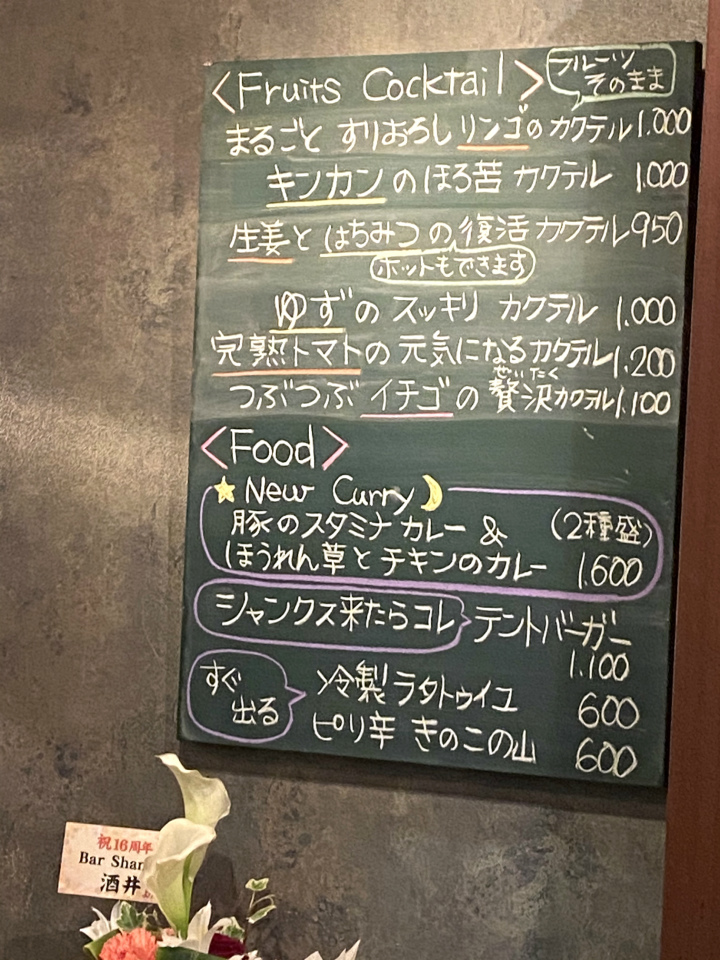 <Fruits Cocktail>
フルーツ
そのまま
まるごと すりおろしリンゴのカクテル 1.000
キンカンのほろ苦カクテル 1.000
生姜とはちみつの復活カクテル 950
ホットもできます
ゆずのスッキリカクテル 1.000
完熟トマトの元気になるカクテル 1.200
せいたく
つぶつぶイチゴの贅沢カクテル 1.100
<Food>
New Curry
豚のスタミナカレー & (2種盛)
ほうれん草とチキンのカレー 1.600
シャンクス来たらコレ テントバーガー
1.100
すぐ
出る
冷製ラタトゥイユ 600
ピリ辛 きのこの山 600
祝16周年
Bar
酒井